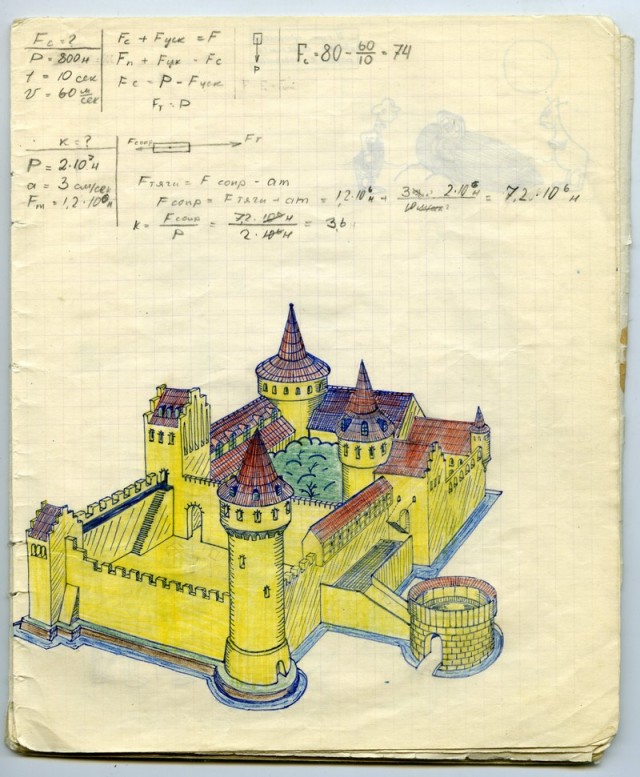 Fc = ?
P = 800н
t = 10 сек
v = 60 м/сек
Fc + Fуск = F
Fп + Fуск = Fc
Fc = P - Fуск
Fт = P
P
Fc = 80 - 60/10 = 74
к = ?
P = 2·10⁷н
a = 3 см/сек
Fm = 1,2·10⁶н
Fсопр
Fт
Fтяги = Fсопр - am
Fсопр = Fтяги + am = 1,2·10⁶н + 2·10⁶н = 7,2·10⁶н
к = Fсопр/P = 7,2·10⁶н/2·10⁶н = 3,6